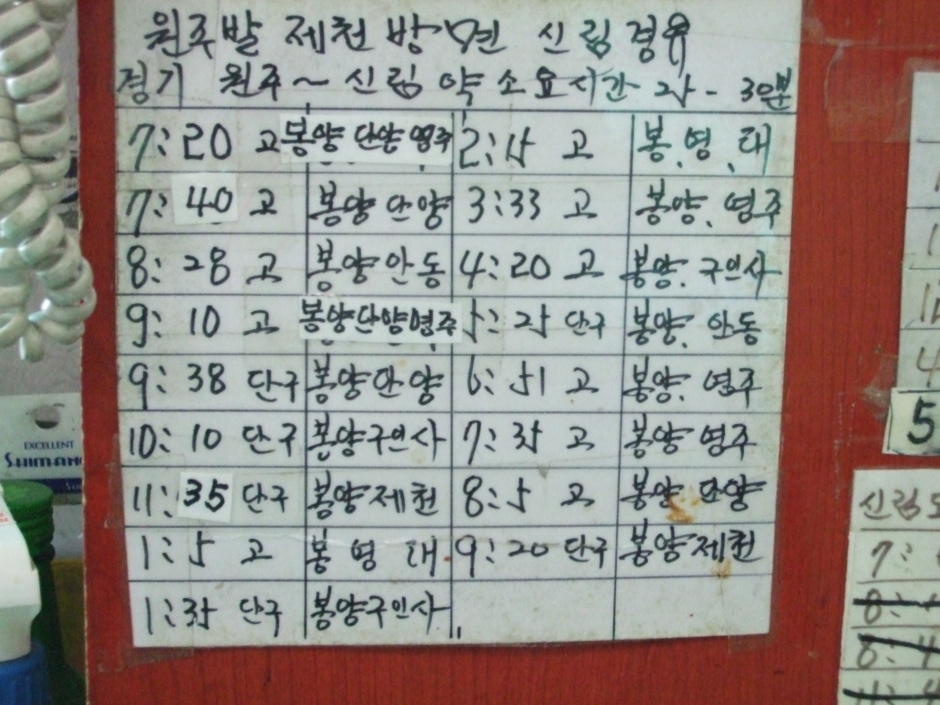 원주발 제천 방면 신림 경유
경기 원주~신림 약 소요시간 25 - 30분
7:20 고 봉양 단양 영주 2:15 고 봉.영.대
7:40 고 봉양 단양 3:33 고 봉양. 영주
8:28 고 봉양 안동 4:20 고 봉양. 구인사
9:10 고 봉양 단양 영주 5:25 단구 봉양. 안동
9:38 단구 봉양 단양 6:51 고 봉양. 영주
10:10 단구 봉양 구인사 7:35 고 봉양 영주
11:35 단구 봉양 제천 8:5 고 봉양 단양
1:5 고 봉 영 대 9:20 단구 봉양 제천
1:35 단구 봉양 구인사
EXCELLENT
SHIMANO
4
5
신림
7:
8:
8:4